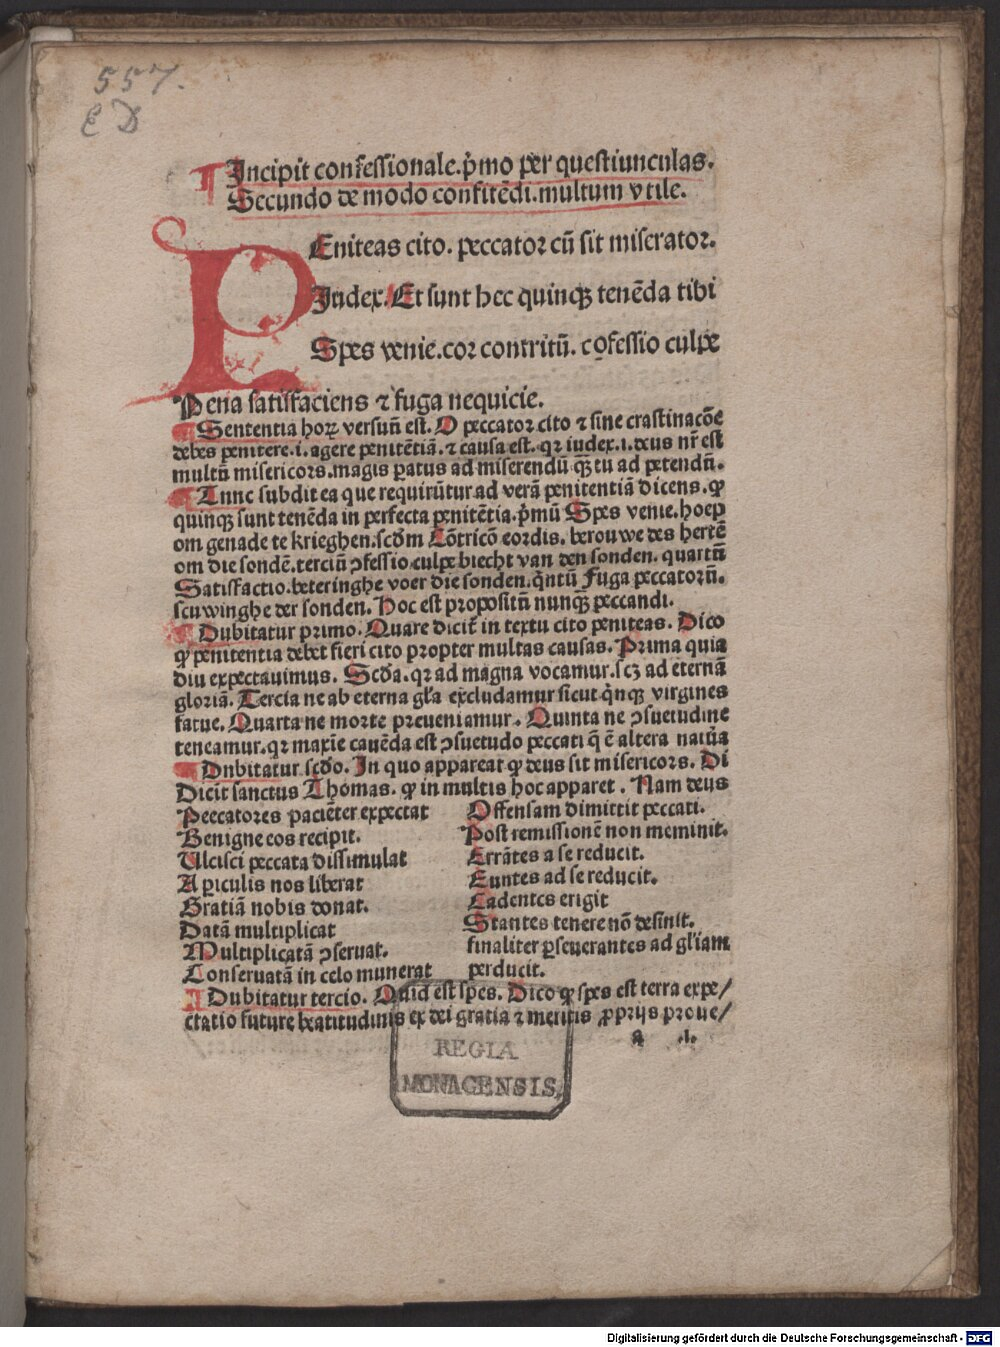 557.
E D
¶ Incipit confessionale. p̄mo per questiunculas.
Secundo de modo confitēdi. multum vtile.
PEniteas cito. peccator cū sit miserator.
Iudex. Et sunt hec quinqȝ tenēda tibi
Spes venie. cor contritū. cōfessio culpe
Pena satisfaciens ⁊ fuga nequicie.
¶ Sententia hoꝝ versuū est. O peccator cito ⁊ sine crastinacōe
debes penitere .i. agere penitētiā. ⁊ causa est. qꝛ iudex .i. deus nr̄ est
multū misericors. magis ꝑatus ad miserendū qȝ̄ tu ad petendū.
¶ Tunc subdit ea que requirūtur ad verā penitentiā dicens. ꝙ
quinqȝ sunt tenēda in perfecta penitētia. p̄mū Spes venie. hoep
om genade te krieghen. scd̄m Cōtricō cordis. berouwe des hertē
om die sondē. terciū ꝯfessio culpe biecht van den sonden. quartū
Satisfactio. beteringhe voer die sonden. q̄ntū Fuga peccatorū.
scuwinghe der sonden. Hoc est propositū nunqȝ̄ peccandi.
¶ Dubitatur primo. Quare dicit̄ in textu cito peniteas. Dico
ꝙ penitentia debet fieri cito propter multas causas. Prima quia
diu expectauimus. Scd̄a. qꝛ ad magna vocamur. scȝ ad eternā
gloriā. Tercia ne ab eterna gl̄a excludamur sicut q̄nqȝ virgines
fatue. Quarta ne morte preueniamur. Quinta ne ꝯsuetudine
teneamur. qꝛ maxīe cauēda est ꝯsuetudo peccati q̄ ē altera natūa
¶ Dubitatur scd̄o. In quo appareat ꝙ deus sit misericors. Di
Dicit sanctus Thomas. ꝙ in multis hoc apparet. Nam deus
Peccatores paciēter expectat
Benigne eos recipit.
Ulcisci peccata dissimulat
A ꝑiculis nos liberat
Gratiā nobis donat.
Datā multiplicat
Multiplicatā ꝯseruat.
Conseruatā in celo munerat
Offensam dimittit peccati.
Post remissionē non meminit.
Errātes a se reducit.
Euntes ad se reducit.
Cadentes erigit
Stantes tenere nō desinit.
finaliter ꝑseuerantes ad gl̄iam
perducit.
¶ Dubitatur tercio. Quid est spes. Dico ꝙ spes est terra expe/
ctatio future beatitudinis ex dei gratia ⁊ meritis ꝓprijs proue/
a .i.
REGIA
MONACENSIS.
Digitalisierung gefördert durch die Deutsche Forschungsgemeinschaft - DFG